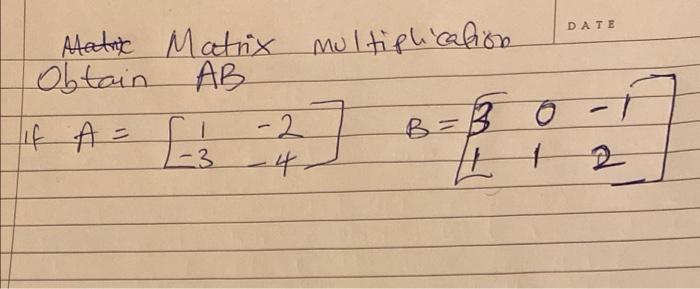 DATE
Matrix Matrix multiplication
Obtain AB
if A = [ 1 -2 ] B = [ 3 0 -1 ]
[ -3 -4 ] [ 1 1 2 ]